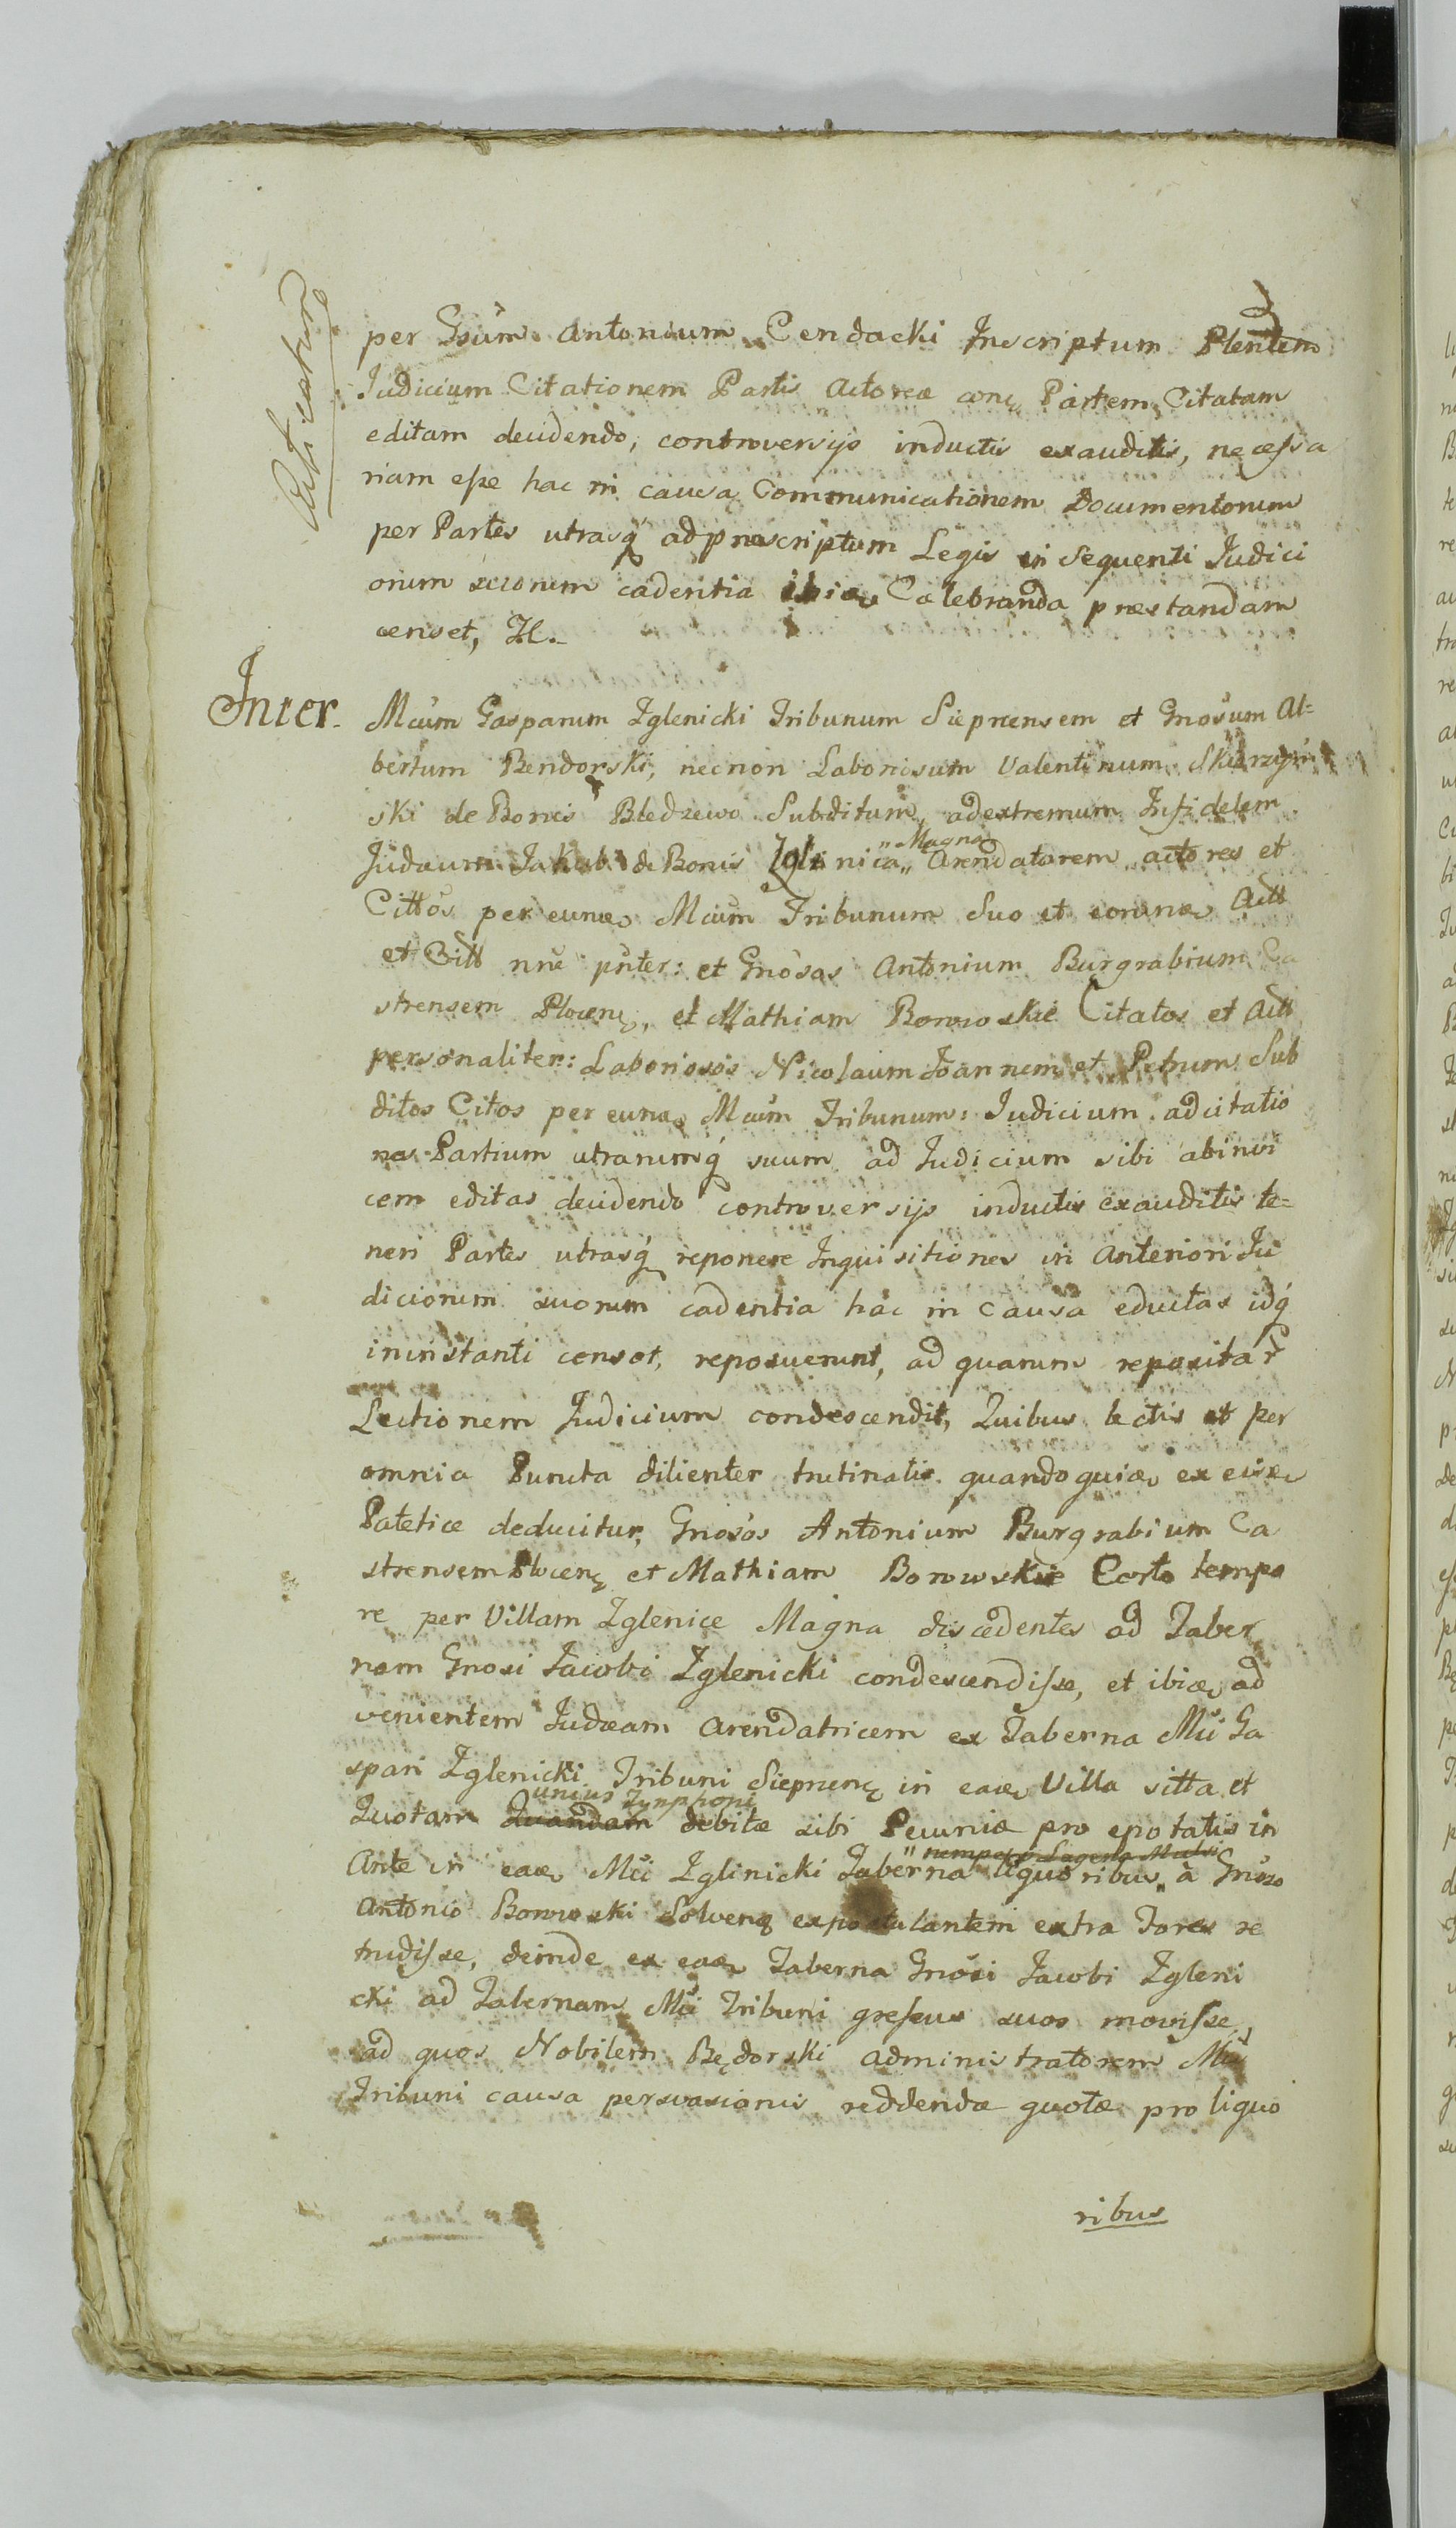 per Gsum Antonium Cendacki Inscriptum Plentem
Judicium Citationem Partis Actoreæ conę Partem Citatam
editam decidendo, controversijs inductis exauditis, necessa
riam esse hac in causa Communicationem Documentorum
per Partes utrasq́ ad præscriptum Legis in Sequenti Judici
orum suorum cadentia ibiæ Cælebranda præstandam
censet,
Inter Mcum Gasparum Zglenicki Tribunum Sieprcensem et Gnosum Al=
bertum Bendorski, necnon Laboriosum Valentinum Skierzyń
ski de Bonis Bledzewo Subditum, ad extremum Infidelem
Judæum Jakub de Bonis Zglinica „Magna„ Arendatorem actores et
Cittos per eunæ Mcum Tribunum Suo et eorumæ Actt
et Citt nne pnter: et Gnosos Antonium Burgrabium Ca
strensem Plocenę, et Mathiam Borowskie Citatos et Actt
personaliter: Laboriosos Nicolaum Joannem et Petrum Sub
ditos Citos per eunæ Mcum Tribunum: Judicium ad citatio
nes Partium utrarumq́ suum ad Judicium sibi abinvi
cem editas decidendo controversijs inductis exauditis te=
neri Partes utrasq́ reponere Inquisitiones in Anteriori Ju
diciorum suorum cadentia hac in causa eductas idq́
in instanti censet, reposuerunt, ad quarum repositar̃
Lectionem Judicium condescendit, Quibus lectis et per
omnia Puncta dilienter trutinatis quandoquiæ ex eisæ
Patetice deducitur, Gnosos Antonium Burgrabium Ca
strensem Plocenę et Mathiam Borowskie Certo tempo
re per Villam Zglenice Magna discedentes ad Taber
nam Gnosi Jacobi Zglenicki condescendisse, et ibiæ ad
venientem Judæam Arendatricem ex Taberna Mci Ga
spari Zglenicki Tribuni Sieprcenę in eaæ Villa sitta et
Quotam Quandam unius Tynphoni debitæ sibi Pecuniæ pro epotatis in
Ante in eaæ Mci Zglinicki Taberna liquoribus „nempe pro Lagena Mulsi„ à Gnoso
Antonio Borowski Solvenę expostulantem extra Fores re
trudisse, deinde ex eaæ Taberna Gnosi Jacobi Zgleni
cki ad Tabernam Mci Tribuni gressus suos movisse,
ad quos Nobilem Będorski Administratorem Mci
Tribuni causa persvasionis reddendæ quotæ pro liquo
ribus